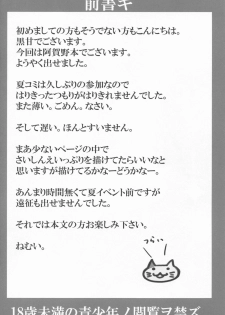 前書キ
初めましての方もそうでない方もこんにちは。
黒甘でございます。
今回は阿賀野本でございます。
ようやく出せました。
夏コミは久しぶりの参加なので
はりきったつもりがはりきれませんでした。
また薄い。ごめん。なさい。
そして遅い。ほんとすいません。
まあ少ないページの中で
さいしんえいっぷりを描けてたらいいなと
思いますが描けてるかなーどうかなー。
あんまり時間無くて夏イベント前ですが
遠征も出せませんでした。
それでは本文の方お楽しみ下さい。
ねむい。
18歳未満の青少年ノ閲覧ヲ禁ズ